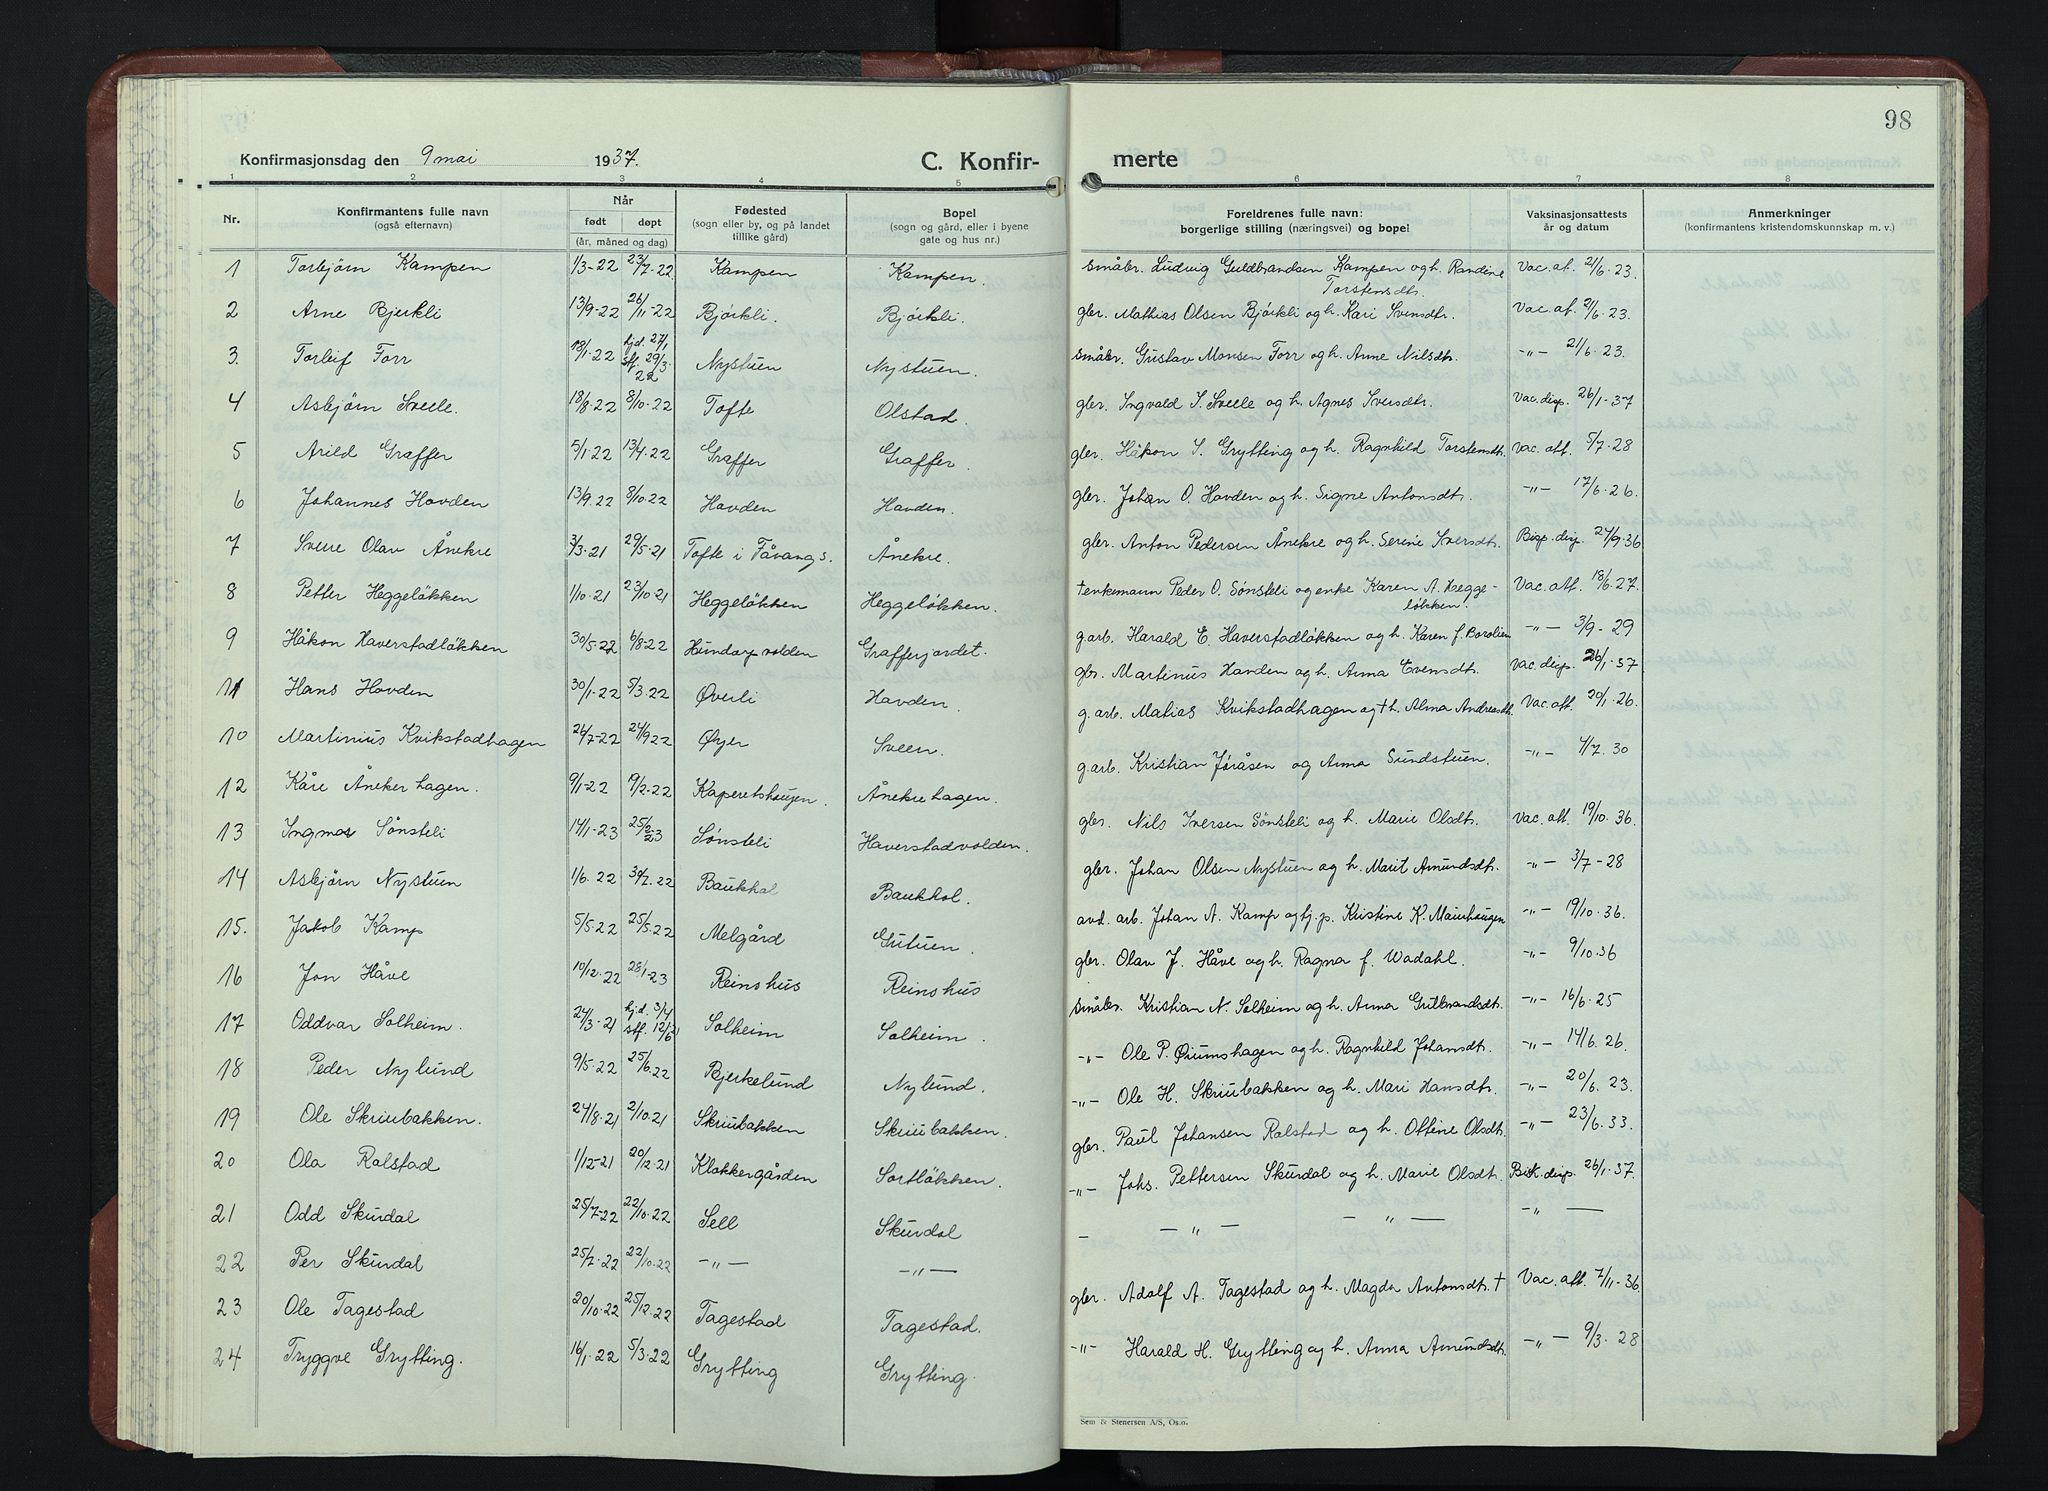 98
Konfirmasjonsdag den 9 mai 1937. C. Konfir- merte
1 2 3 4 5 6 7 8
Nr. Konfirmantens fulle navn (også efternavn) Når født døpt (år, måned og dag) Fødested (sogn eller by, og på landet tillike gård) Bopel (sogn og gård, eller i byene gate og hus nr.) Foreldrenes fulle navn: borgerlige stilling (næringsvei) og bopel Vaksinasjonsattests år og datum Anmerkninger (konfirmantens kristendomskunnskap m. v.)
1 Torbjörn Kampen 1/3-22 23/7-22 Kampen Kampen. småbr. Ludvig Guldbrandsen Kampen og h. Randine Torstensdtr. Vac. at. 21/6. 23.
2 Arne Bjerkli 13/9-22 26/11-22 Björkli. Björkli. gbr. Mathias Olsen Björkli og h. Kari Svensdtr. Vac. at. 21/6. 23.
3. Torleif Forr 18/1-22 hjd. 27/1 stf. 29/3. 22 Nystuen Nystuen. småbr. Gustav Monsen Forr og h. Anne Nilsdtr. -„- 21/6. 23.
4 Asbjörn Svele. 18/8-22 8/10-22 Tofte Olstad. gbr. Ingvald I. Sveele og h. Agnes Iversdtr. Vac. disp. 26/1-37
5 Arild Graffer 5/1-22 13/4.22 Graffer Graffer. gbr. Håkon I. Grytting og h. Ragnhild Torstensdtr. Vac. att. 5/7-28
6 Johannes Hovden 13/9.22 8/10-22 Hovden Hovden. gbr. Johan O. Hovden og h. Signe Antonsdtr. -„- 17/6-26.
7 Sverre Olav Ånekre 3/3-21 29/5-21 Tofte i Fåvang s. Ånekre. gbr. Anton Pedersen Ånekre og h. Serine Iversdtr. Bisp. disp. 24/9-36
8 Petter Heggelökken 1/10-21 23/10-21 Heggelökken Heggelökken. tenkemann Peder O. Sønsteli og enke Karen A. Heggelökken. Vac. att. 18/6-27.
9 Håkon Haverstadlökken 30/5-22 6/8-22 Hundorpvolden Grafferjordet. g.arb. Harald E. Haverstadløkken og h. Karen f. Borolien -„- 3/9-29
11 Hans Hovden 30/1-22 5/3.22 Øverli Hovden. gbr. Martinius Hovden og h. Anna Evensdtr. Vac. disp. 26/1-37
10 Martinius Kvikstadhagen 26/7-22 24/9 22 Øyer Sveen. g. arb. Matias Kvikstadhagen og † h. Alma Andreasdtr. Vac. att. 20/1-26.
12 Kåre Åneker hagen. 9/1-22 19/2-22 Kaperetshaugen. Ånekre hagen. g.arb. Kristian Jøråsen og Anna Sundstuen. -„- 4/7. 30
13 Ingmar Sönsteli 14/1-23 25/2-23 Sønsteli Haverstadvolden. gbr. Nils Iversen Sønsteli og h. Marie Olsdtr. Vac. att. 19/10. 36.
14 Asbjörn Nystuen 1/6. 22 30/7. 22 Baukhol Baukhol. gbr. Johan Olsen Nystuen og h. Marit Amundsdtr. -„- 3/7-28
15. Jakob Kamp 5/5-22 25/5.22 Melgård Gutuen. avd. arb. Johan A. Kamp og hj.p. Kristine K. Mainhaugen -„- 19/10. 36.
16 Jon Håve 10/12.22 28/1-23 Reinshus Reinshus gbr. Olav J. Håve og h. Ragna f. Wadahl. -„- 9/10-36
17 Oddvar Solheim. 24/3-21 hj.d. 3/4 stf. 12/6 21 Solheim Solheim. småbr. Kristian N. Solheim og h. Anna Gutbrandsdtr. -„- 16/6-25
18 Peder Nylund 9/5-22 25/6.22 Bjerkelund Nylund. -„- Ole P. Øiumshagen og h. Ragnhild Johansdtr. -„- 14/6. 26.
19 Ole Skriubakken. 24/8-21 2/10-21 Skriubakken Skriubakken. -„- Ole H. Skriubakken og h. Mari Hansdtr. -„- 20/6. 23.
20 Ola Ralstad 1/12-21 20/12-21 Klokkergården Sortlökken. gbr. Paul Johansen Ralstad og h. Ottine Olsdtr. -„- 23/6. 33.
21 Odd Skurdal 25/7-22 22/10.22 Sell Skurdal -„- Johs. Pettersen Skurdal og h. Marie Olsdtr. Bisk. disp. 26/1-37.
22 Per Skurdal 25/7.22 22/10-22 -„- -„- - -„- -„- -„-
23 Ole Tagestad 20/10-22 25/12.22 Tagestad Tagestad. gbr. Adolf A. Tagestad og h. Magda Antonsdtr. † Vac. att. 7/11-36.
24 Tryggve Grytting. 16/1.22 5/3.22 Grytting Grytting. -„- Harald H. Grytting og h. Anna Amundsdtr. -„- 9/3-28
Sem & Stenersen A/S, Oslo.